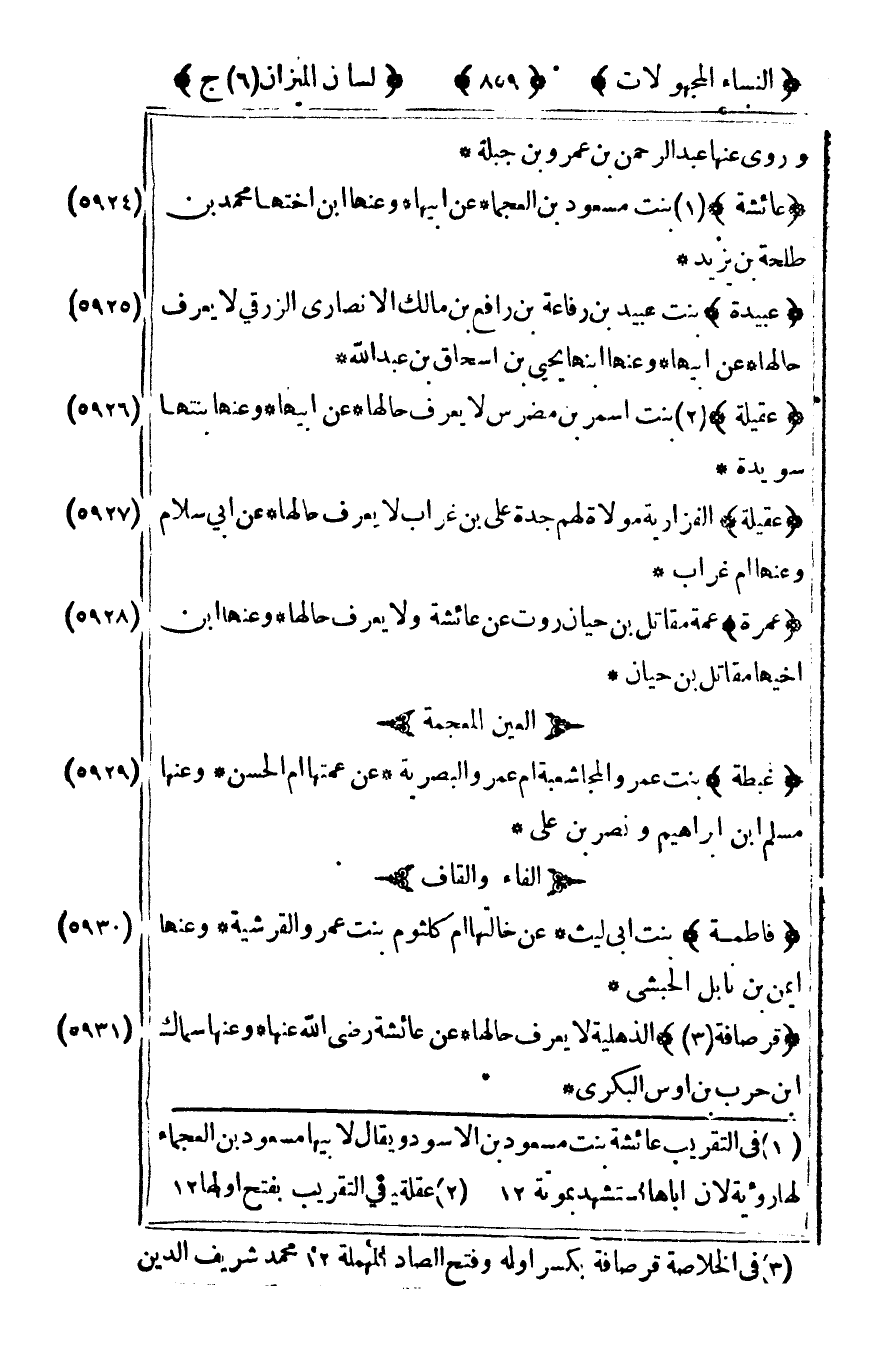 ﴿ النساء المجهولات ﴾ ﴿ ٨٥٩ ﴾ ﴿ لسان الميزان (٦) ج ﴾
و روى عنها عبد الرحمن بن عمرو بن جبلة *
﴿ عائشة ﴾ (١) بنت مسعود بن العجماء * عن ابيها * وعنها ابن اختها محمد بن (٥٩٢٤)
طلحة بن يزيد *
﴿ عبيدة ﴾ بنت عبيد بن رفاعة بن رافع بن مالك الانصارى الزرقي لا يعرف (٥٩٢٥)
حالها * عن ابيها * وعنها ابنها يحيى بن اسحاق بن عبد الله *
﴿ عقيلة ﴾ (٢) بنت اسمر بن مضرس لا يعرف حالها * عن ابيها * وعنها بنتها (٥٩٢٦)
سويدة *
﴿ عقيلة ﴾ الفزارية مولاة لهم جدة على بن غراب لا يعرف حالها * عن ابي سلام (٥٩٢٧)
وعنها ام غراب *
﴿ عمرة ﴾ عمة مقاتل بن حيان روت عن عائشة ولا يعرف حالها * وعنها ابن (٥٩٢٨)
اخيها مقاتل بن حيان *
الغين المعجمة
﴿ غبطة ﴾ بنت عمرو المجاشعية ام عمرو البصرية * عن عمتها ام الحسن * وعنها (٥٩٢٩)
مسلم ابن ابراهيم و نصر بن على *
الفاء والقاف
﴿ فاطمة ﴾ بنت ابى ليث * عن خالتها ام كلثوم بنت عمرو القرشية * وعنها (٥٩٣٠)
ايمن بن نابل الحبشى *
﴿ قرصافة (٣) ﴾ الذهلية لا يعرف حالها * عن عائشة رضى الله عنها * وعنها سماك (٥٩٣١)
ابن حرب بن اوس البكرى *
(١) فى التقريب عائشة بنت مسعود بن الاسود ويقال لابيها مسعود بن العجماء
لها روئية لان اباها استشهد بموتة ١٢ (٢) عقلة في التقريب بفتح اولها ١٢
(٣) فى الخلاصة قرصافة بكسر اوله وفتح الصاد المهملة ١٢ محمد شريف الدين